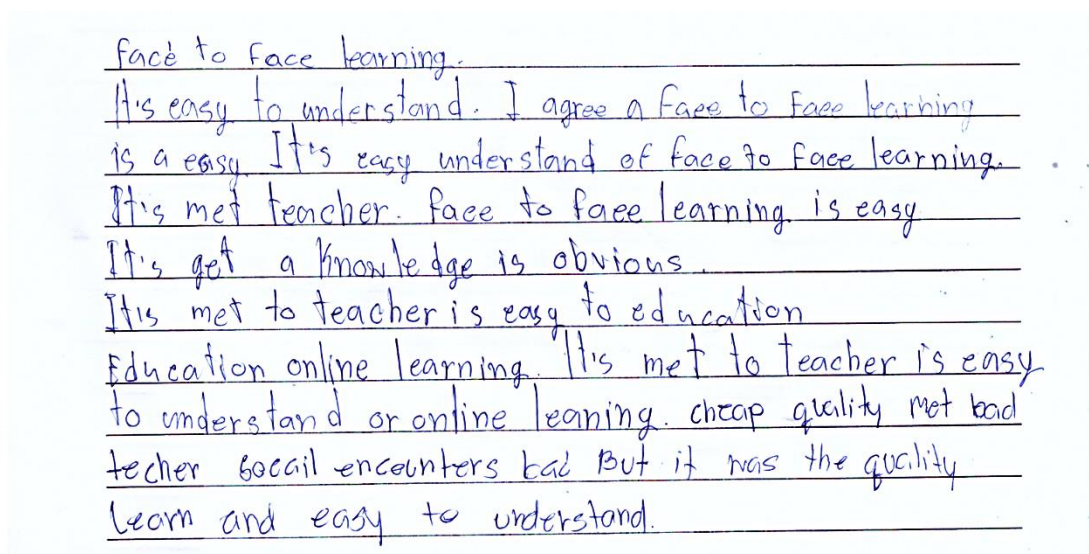 face to face learning.
It's easy to understand. I agree a face to face learning
is a easy. It's easy understand of face to face learning.
It's met teacher. face to face learning. is easy
It's get a knowledge is obvious.
It is met to teacher is easy to education
Education online learning. It's met to teacher is easy
to understand or online leaning. cheap quality met bad
techer socail encounters bad But it was the quality
learn and easy to understand.